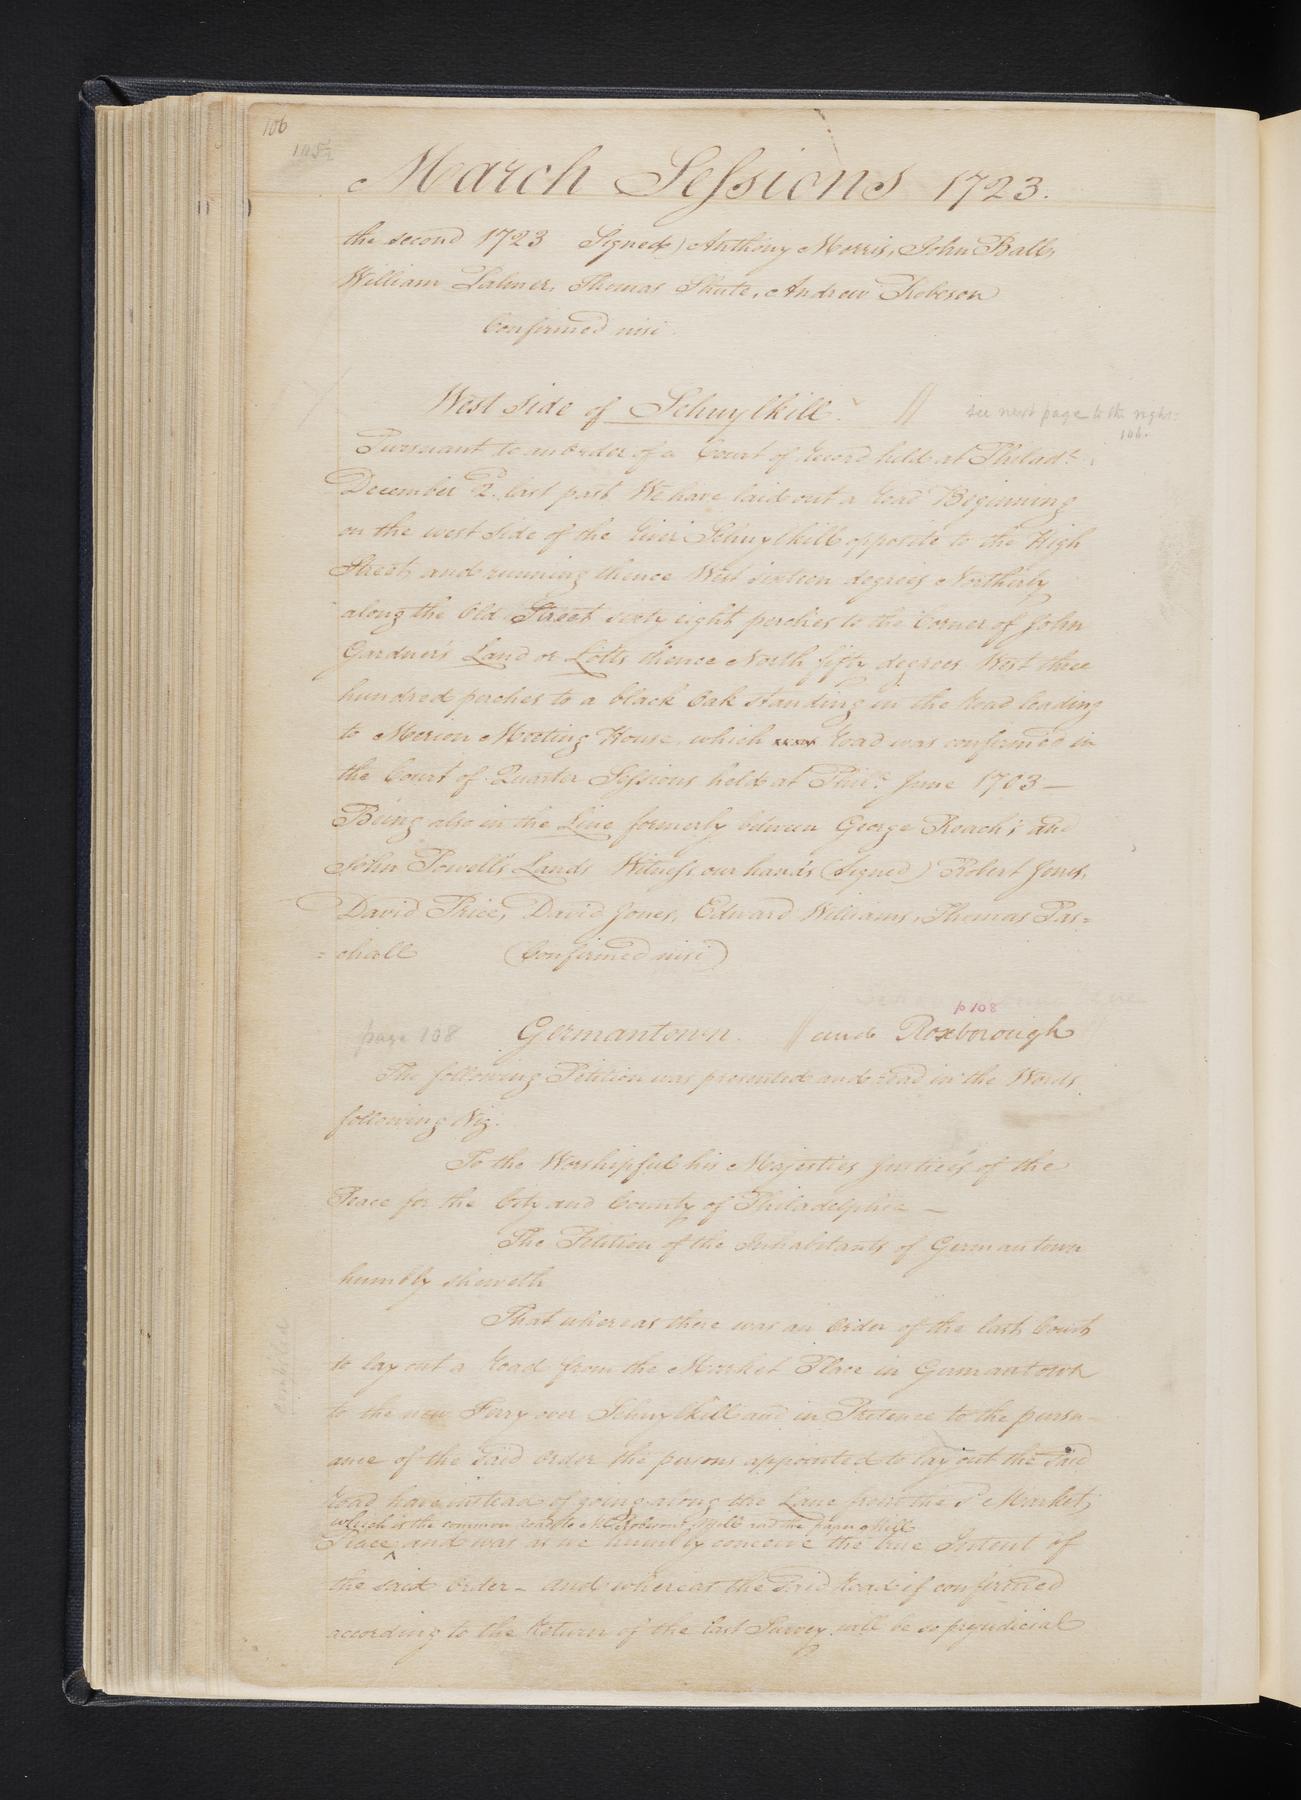 106
105½
March Sessions 1723.
the second 1723 Signed) Anthony Morris, John Ball,
William Palmer, Thomas Shute, Andrew Robeson
Confirmed nisi
West side of Schuylkill. // see next page to the right
106.
Pursuant to an Order of a Court of Record held at Philada.
December 2. last past We have laid out a Road Beginning
on the west side of the River Schuylkill opposite to the High
Street and running thence West sixteen degrees Northerly
along the Old Street sixty eight perches to the Corner of John
Gardner's Land or Lotts thence North fifty degrees West three
hundred perches to a black Oak standing in the Road leading
to Merion Meeting House, which road was confirmed in
the Court of Quarter Sessions held at Phila. June 1703 —
Being also in the Line formerly between George Roach's and
John Powell's Lands Witness our hands (Signed) Robert Jones,
David Price, David Jones, Edward Williams, Thomas Pas=
=chall (Confirmed nisi)
p 108
page 108 Germantown. // and Roxborough
The following Petition was presented and read in the Words
following Viz.
To the Worshipful his Majesties Justices of the
Peace for the City and County of Philadelphia —
The Petition of the Inhabitants of Germantown
humbly sheweth
That whereas there was an Order of the last Court
to lay out a Road from the Market Place in Germantown
to the new Ferry over Schuylkill and in Pretence to the pursu-
ance of the said Order the persons appointed to lay out the said
Road have instead of going along the Lane from the sd Market,
which is the common road to A. Robesons Mill and the paper Mill
Place ^ and was as we humbly conceive the true Intent of
the said Order – and whereas the said Road if confirmed
according to the Return of the last Survey will be so prejudicial